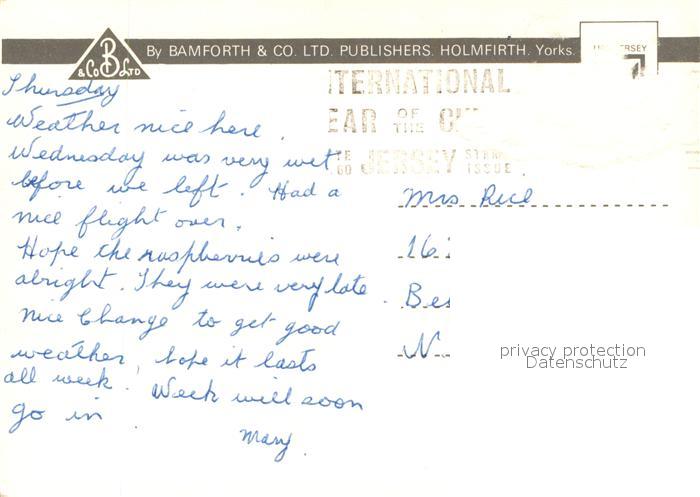 By BAMFORTH & CO. LTD. PUBLISHERS. HOLMFIRTH. Yorks.
B
& Co LTD
JERSEY
Thursday
Weather nice here.
Wednesday was very wet
before we left. Had a
nice flight over.
Hope the raspberries were
alright. They were very late.
nice change to get good
weather, hope it lasts
all week. Week will soon
go in.
Mary.
INTERNATIONAL
YEAR OF THE
JERSEY STAMP ISSUE
Mrs Rice
16
Be
N
privacy protection
Datenschutz